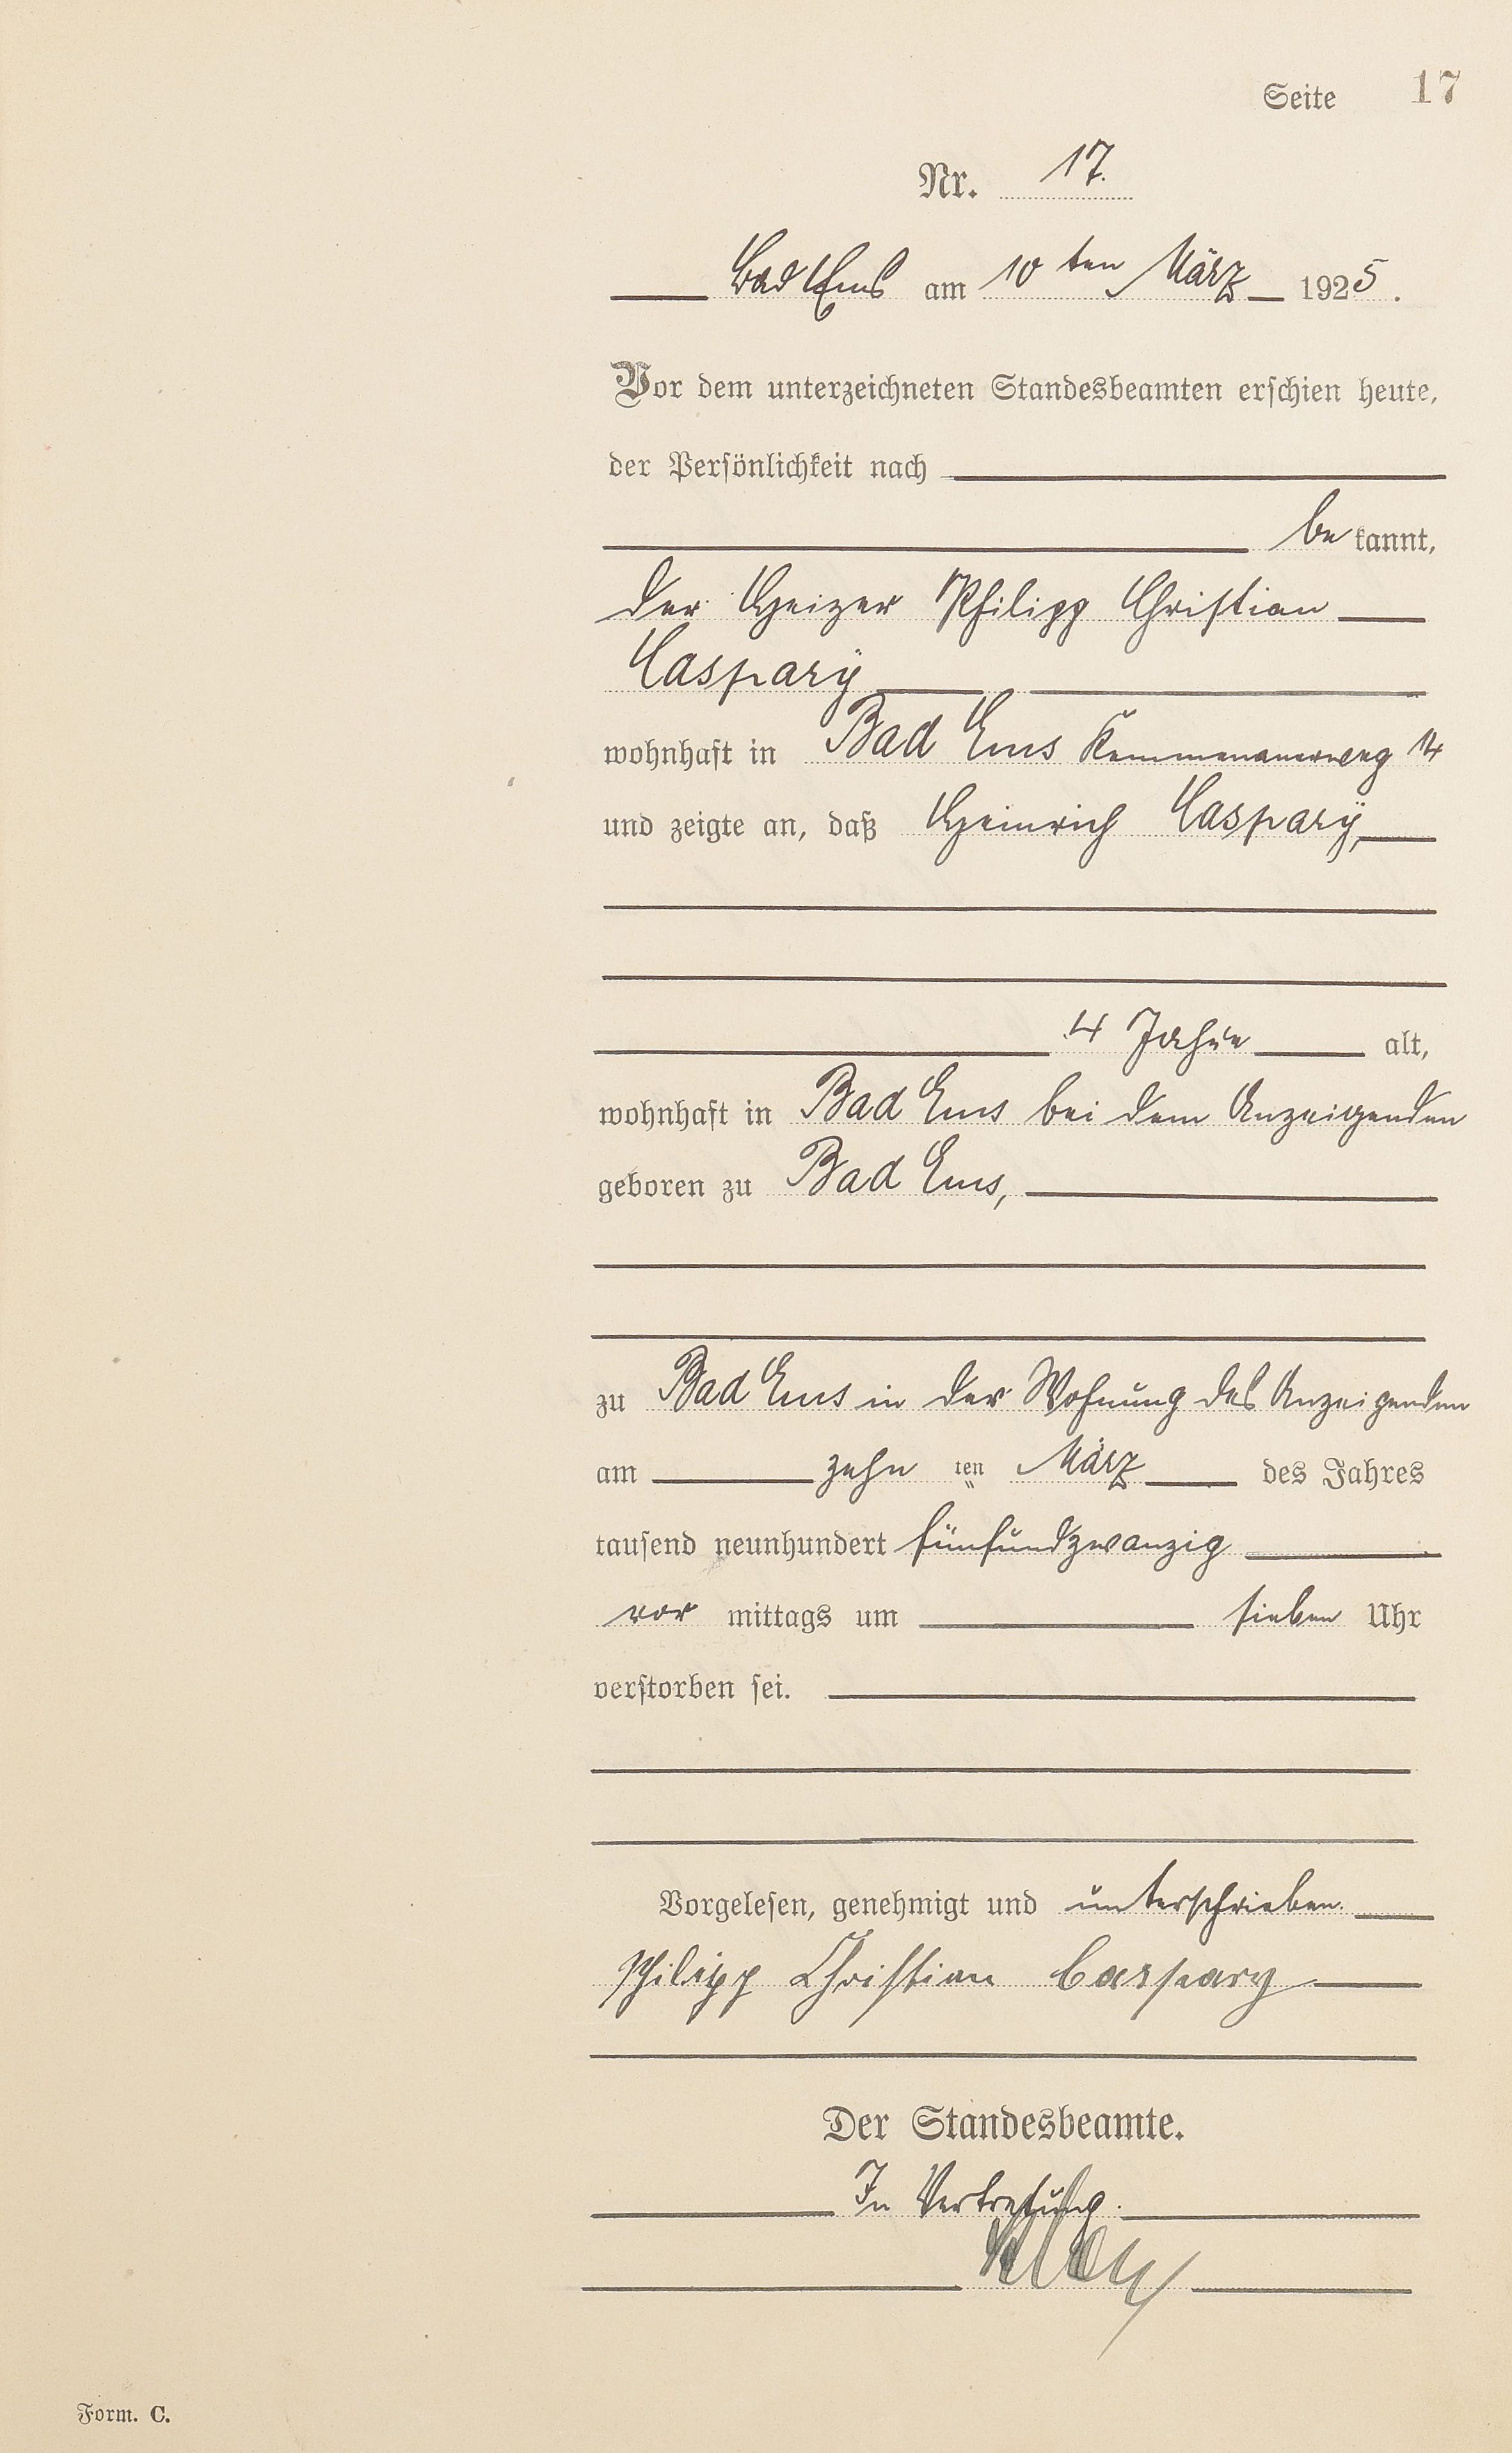 Seite 17
Nr. 17.
Bad Ems am 10 ten März 1925.
Vor dem unterzeichneten Standesbeamten erschien heute,
der Persönlichkeit nach
be kannt,
der Heizer Philipp Christian
Caspary
wohnhaft in Bad Ems Kemmenauerweg 14
und zeigte an, daß Heinrich Caspary,
4 Jahre alt,
wohnhaft in Bad Ems bei dem Anzeigenden
geboren zu Bad Ems,
zu Bad Ems in der Wohnung des Anzeigenden
am zehn ten März des Jahres
tausend neunhundert fünfundzwanzig
vor mittags um sieben Uhr
verstorben sei.
Vorgelesen, genehmigt und unterschrieben.
Philipp Christian Caspary
Der Standesbeamte.
In Vertretung.
Form. C.